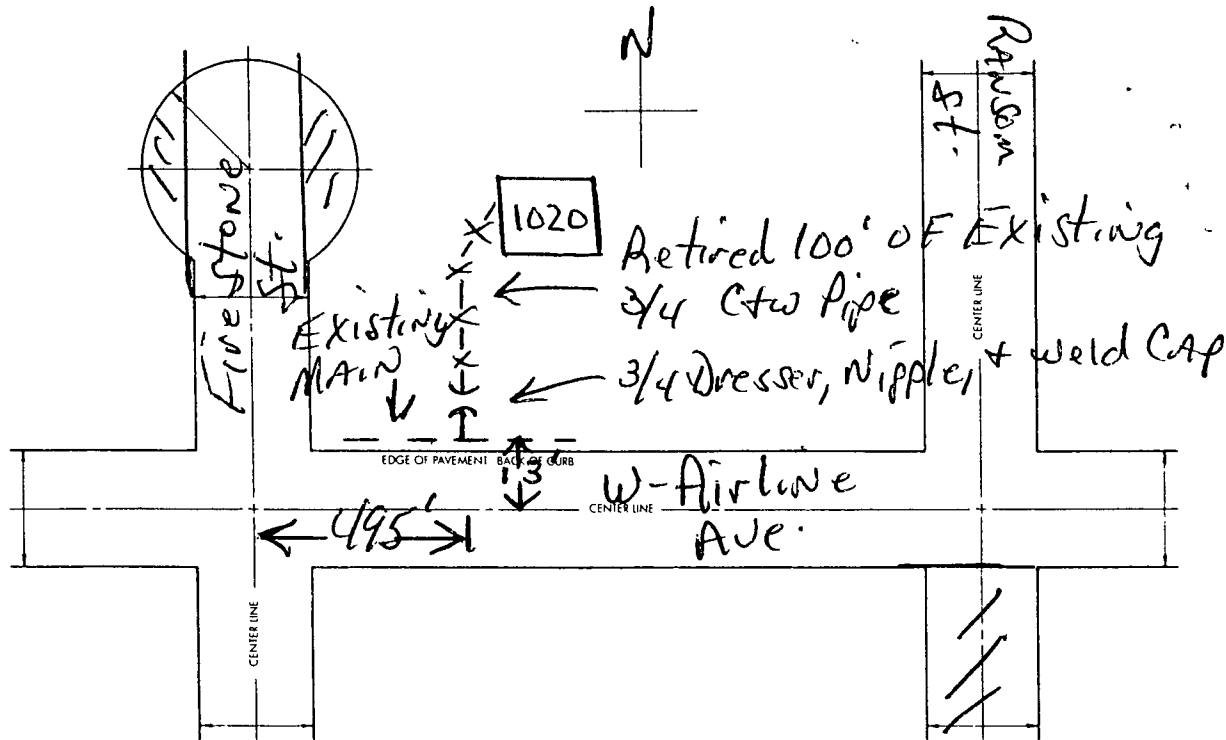 N
Ransom
St.
Firestone
St.
1020
Retired 100' OF Existing
3/4 C+W Pipe
Existing
MAIN
3/4 Dresser, Nipple, + Weld CAP
CENTER LINE
EDGE OF PAVEMENT BACK OF CURB
13'
W-Airline
Ave.
CENTER LINE
495'
CENTER LINE